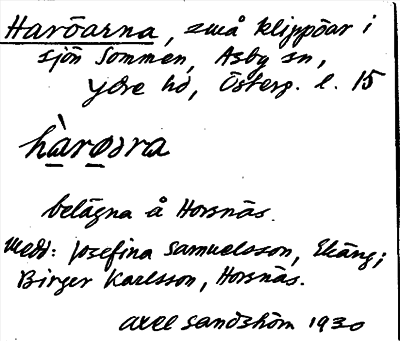 Haröarna, små klippöar i
sjön Sommen, Asby sn,
Ydre hd, Österg. l. 15
hàrωɔra
belägna å Horsnäs.
Medd: Josefina Samuelsson, Ekäng;
Birger Karlsson, Horsnäs.
Axel Sandström 1930